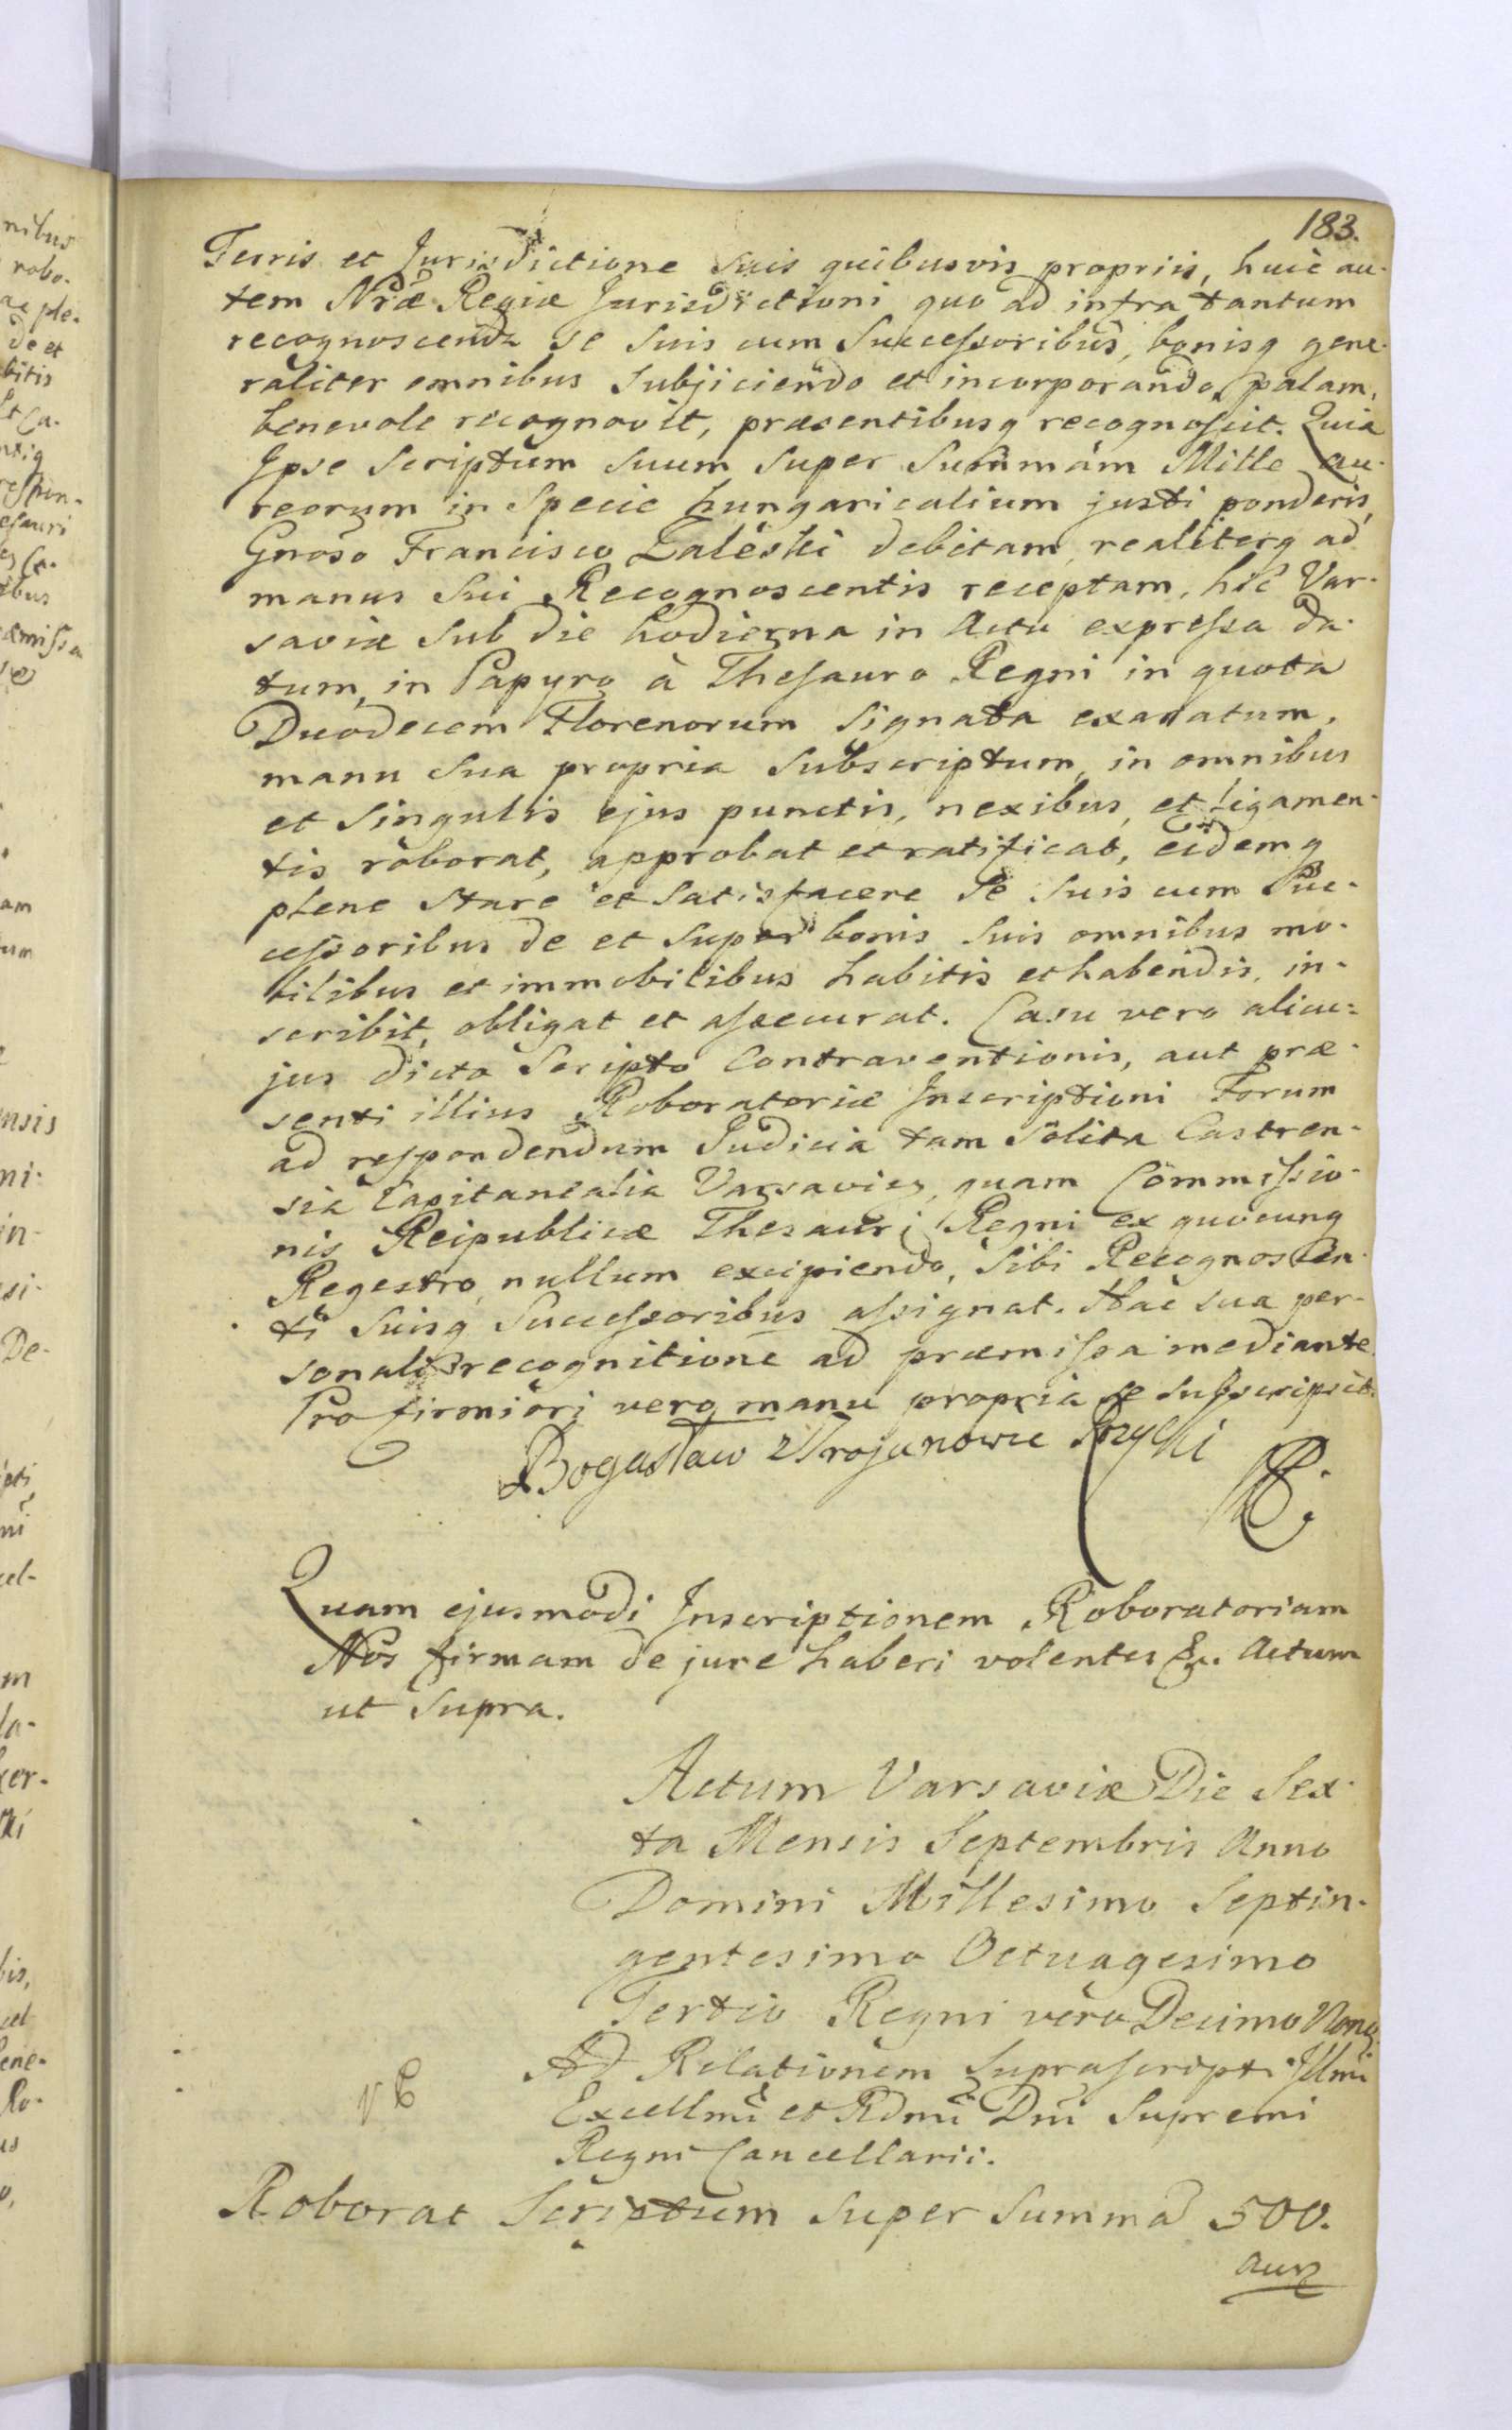 183.
Terris et Jurisdictione suis quibusvis propriis, huic au-
tem Nrae Regiae Jurisdictioni quo ad infra tantum
recognoscenda se suis cum Successoribus, bonisq gene-
raliter omnibus subjiciendo et incorporando, palam,
benevole recognovit, praesentibusq recognoscit. Quia
Ipse Scriptum suum super Summam Mille au-
reorum in Specie hungaricalium justi ponderis,
Gnoso Francisco Zaleski debitam, realiterq ad
manus sui Recognoscentis receptam, hic Var-
saviae sub die hodierna in Actu expressa da-
tum, in Papyro à Thesauro Regni in quota
Duodecem Florenorum signata exaratum,
manu sua propria subscriptum, in omnibus
et singulis ejus punctis, nexibus, et ligamen-
tis roborat, approbat et ratificat, eidemq
plene stare et satisfacere se suis cum Suc-
cessoribus de et super bonis suis omnibus mo-
bilibus et immobilibus habitis et habendis, in-
scribit, obligat et assecurat. Casu vero alicu-
jus dicto Scripto Contraventionis, aut prae-
senti illius Roboratoriae Inscriptioni Forum
ad respondendum Judicia tam solita Castren-
sia Capitanealia Varsavien, quam Commissio-
nis Reipublicae Thesauri Regni ex quocunq
Regestro, nullum excipiendo, sibi Recognoscen-
ti suisq Successoribus assignat. Hac sua per-
sonali recognitione ad praemissa mediante.
Pro firmiori vero manu propria se subscripsit.
Bogusław
Quam ejusmodi Inscriptionem Roboratoriam
Nos firmam de jure haberi volentes &c. Actum
ut supra.
Actum Varsaviae Die Sex-
ta Mensis Septembris Anno
Domini Millesimo Septin-
gentesimo Octuagesimo
Tertio Regni vero Decimo Nono.
Ad Relationem suprascripti Illmi
Excellmi et Rdmi Dni Supremi
Regni Cancellarii.
Roborat Scriptum super summa 500.
Aur